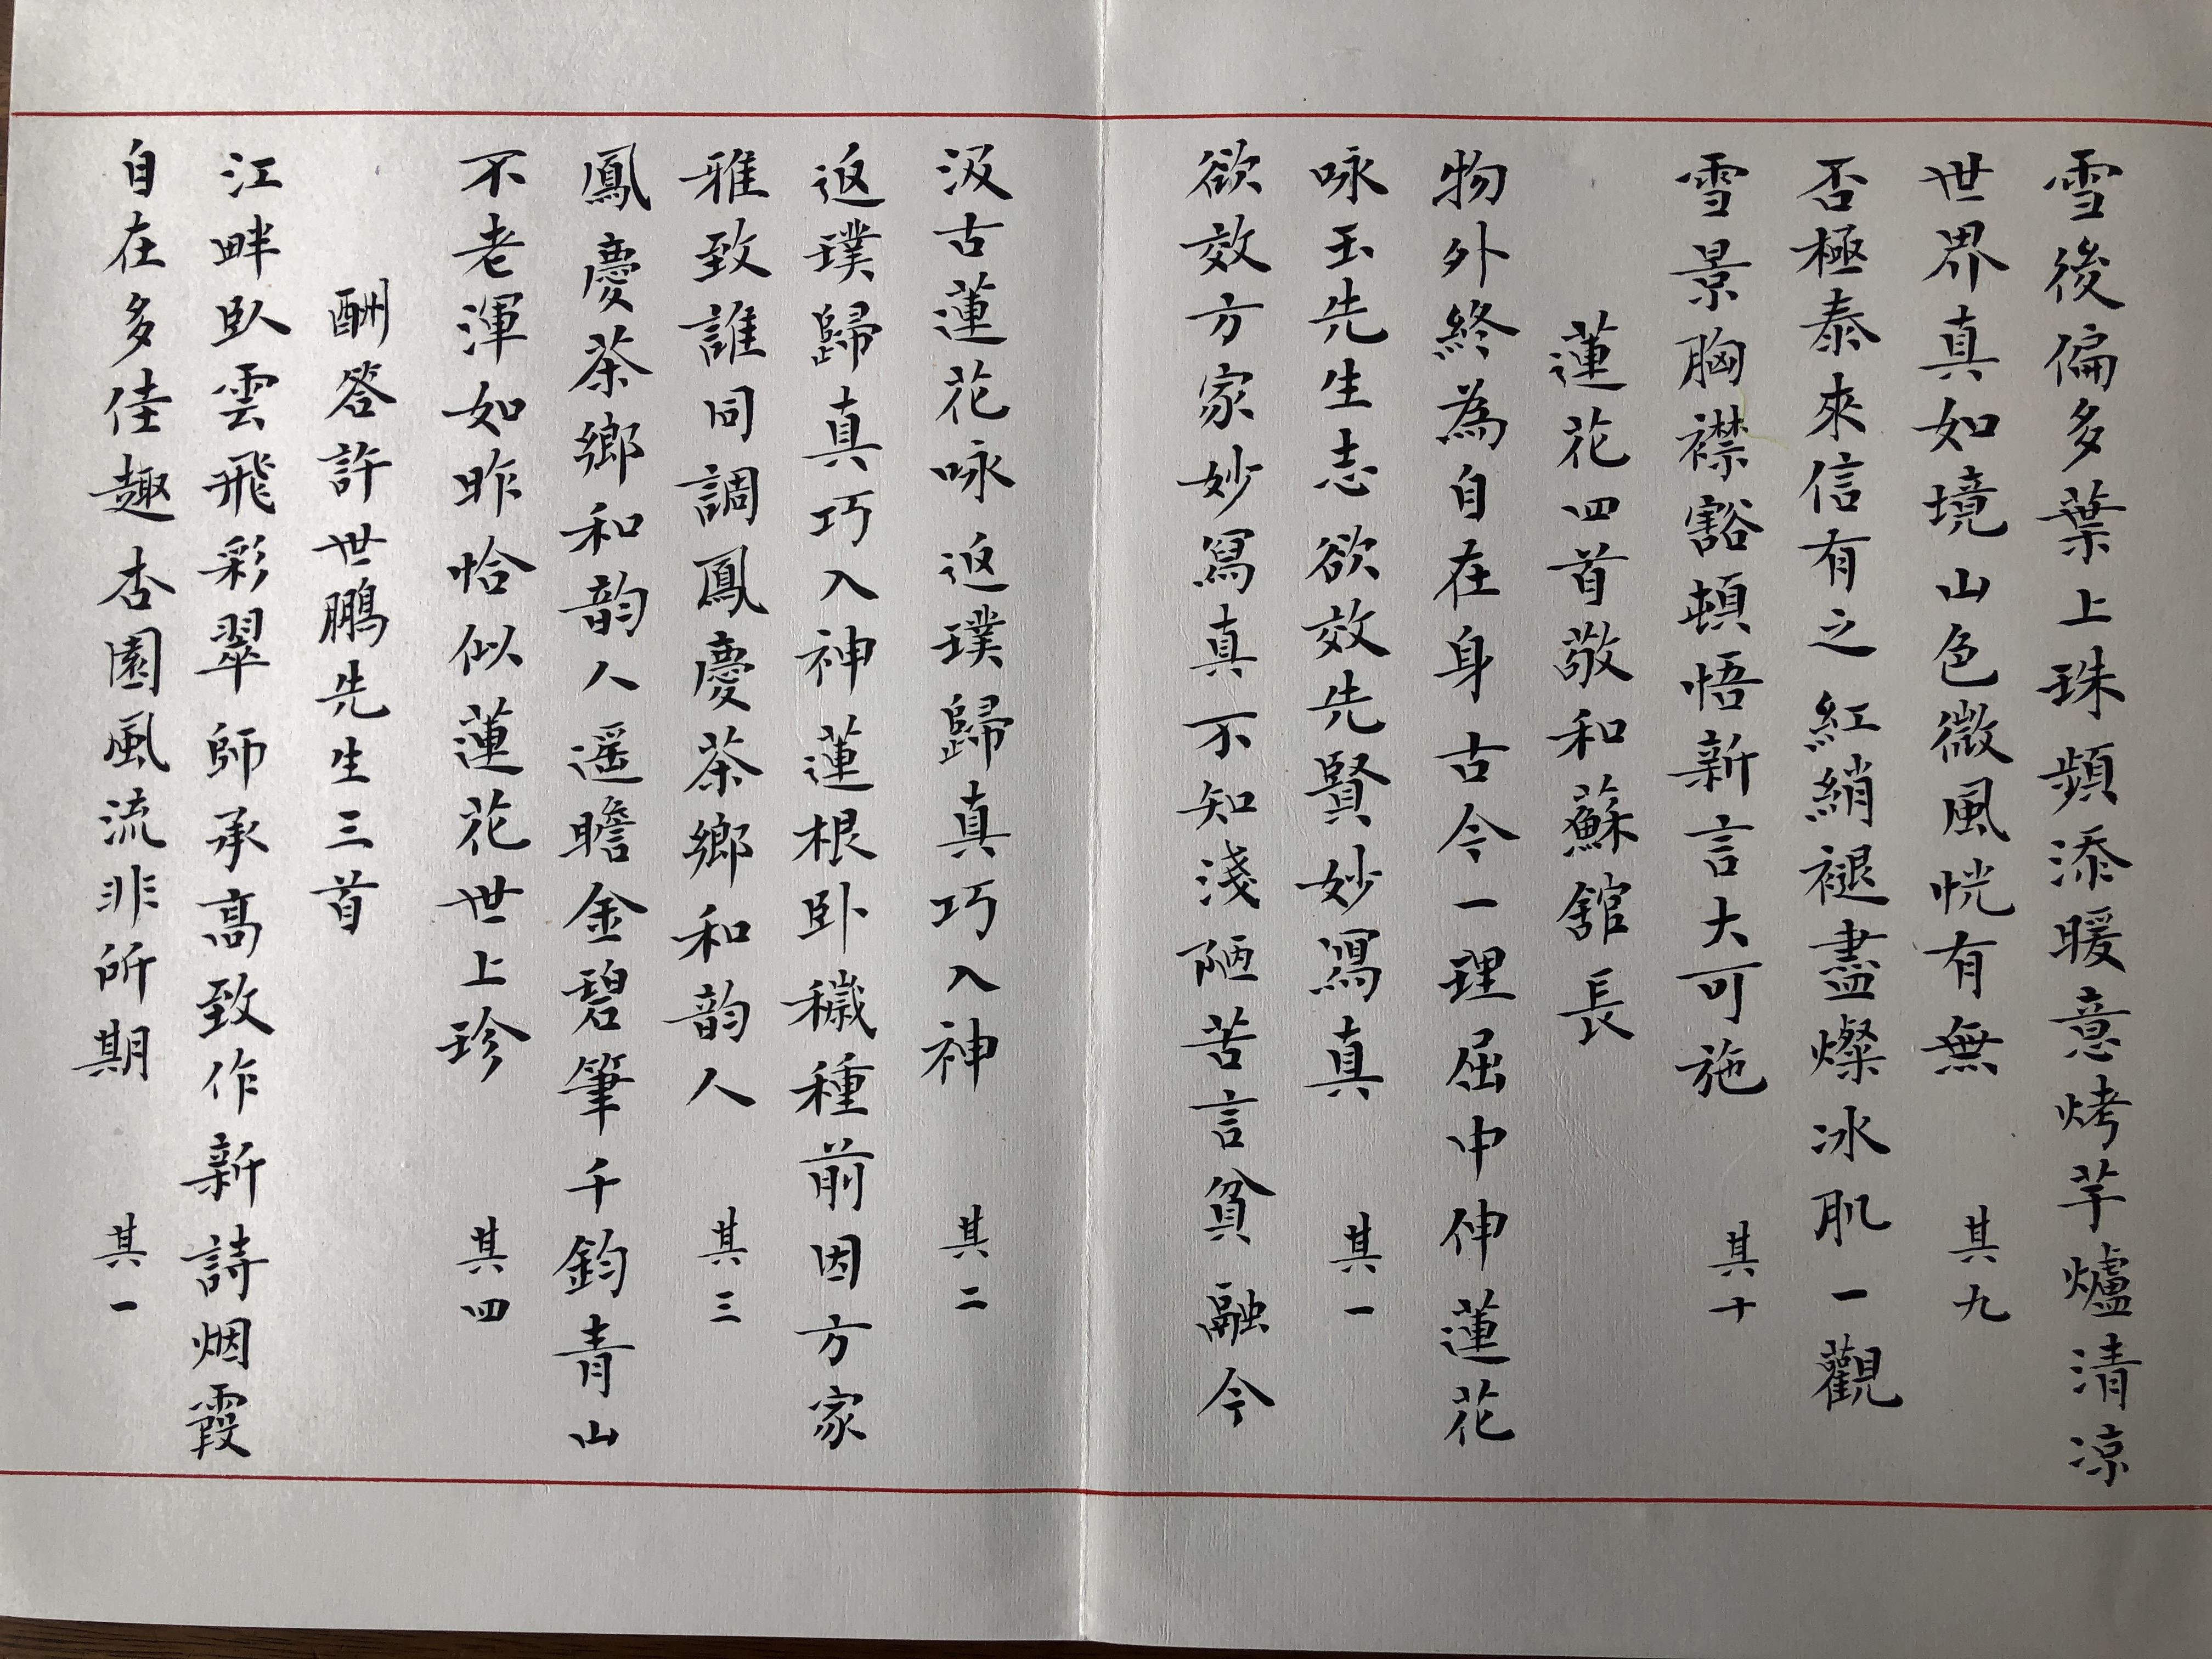 雪後偏多葉上珠頻添暖意烤芋爐清涼
世界真如境山色微風恍有無 其九
否極泰來信有之紅綃褪盡燦冰肌一觀
雪景胸襟豁頓悟新言大可施 其十
蓮花四首敬和蘇舘長
物外終為自在身古今一理屈中伸蓮花
咏玉先生志欲效先賢妙寫真 其一
欲效方家妙寫真不知淺陋苦言貧融今
汲古蓮花咏返璞歸真巧入神 其二
返璞歸真巧入神蓮根卧穢種前因方家
雅致誰同調鳳慶茶鄉和韵人 其三
鳳慶茶鄉和韵人遥瞻金碧筆千鈞青山
不老渾如昨恰似蓮花世上珍 其四
酬答許世鵬先生三首
江畔臥雲飛彩翠師承高致作新詩烟霞
自在多佳趣杏園風流非所期 其一